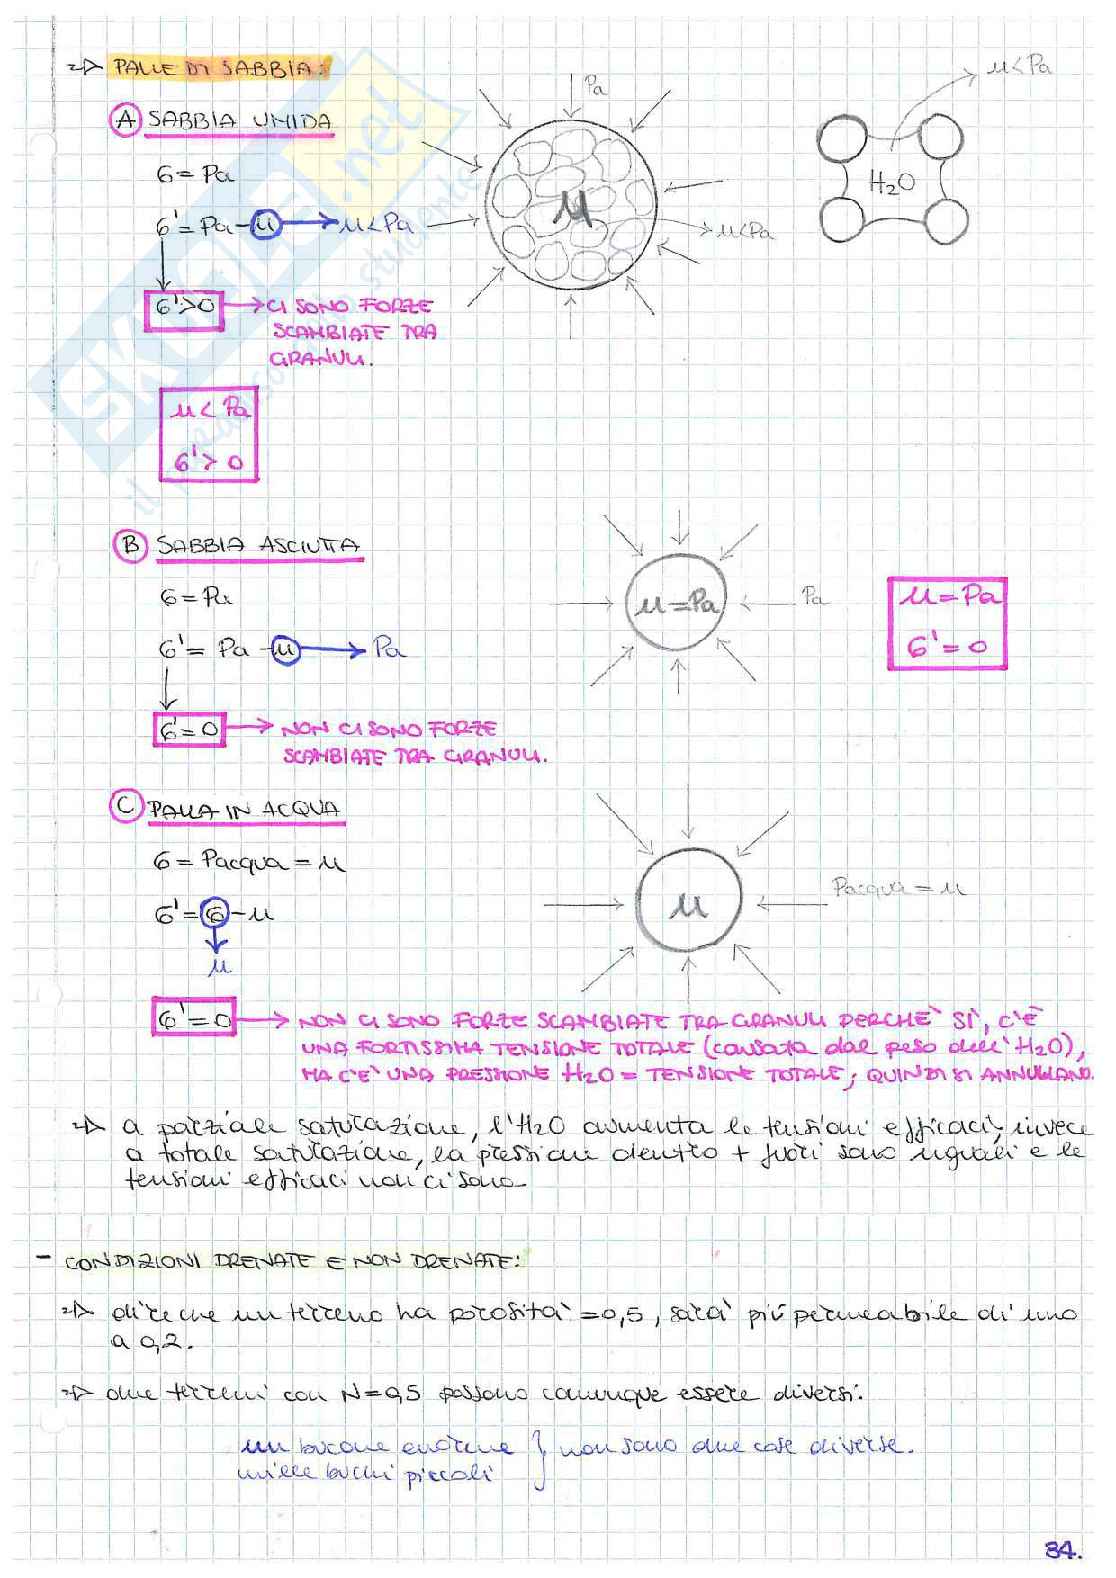 => PALLE DI SABBIA:
A SABBIA UMIDA
σ = Pa
σ' = Pa - u → u < Pa
σ' > 0 → CI SONO FORZE
SCAMBIATE TRA
GRANULI.
u < Pa
σ' > 0
Pa
u
u < Pa
u < Pa
H2O
B SABBIA ASCIUTTA
σ = Pa
σ' = Pa - u → Pa
σ' = 0 → NON CI SONO FORZE
SCAMBIATE TRA GRANULI.
u = Pa
Pa
u = Pa
σ' = 0
C PALLA IN ACQUA
σ = Pacqua = u
σ' = σ - u
u
u
Pacqua = u
σ' = 0 → NON CI SONO FORZE SCAMBIATE TRA GRANULI PERCHÈ SÌ, C'È
UNA FORTISSIMA TENSIONE TOTALE (causata dal peso dell'H2O),
MA C'È UNA PRESSIONE H2O = TENSIONE TOTALE; QUINDI SI ANNULLANO.
=> a parziale saturazione, l'H2O aumenta le tensioni efficaci, invece
a totale saturazione, la pressione dentro + fuori sono uguali e le
tensioni efficaci non ci sono
- CONDIZIONI DRENATE E NON DRENATE:
=> dire che un terreno ha porosità = 0,5, sarà più permeabile di uno
a 0,2.
=> due terreni con N = 0,5 possono comunque essere diversi:
un bucone enorme } non sono due cose diverse.
mille buchi piccoli
34.
SKUOLA.net